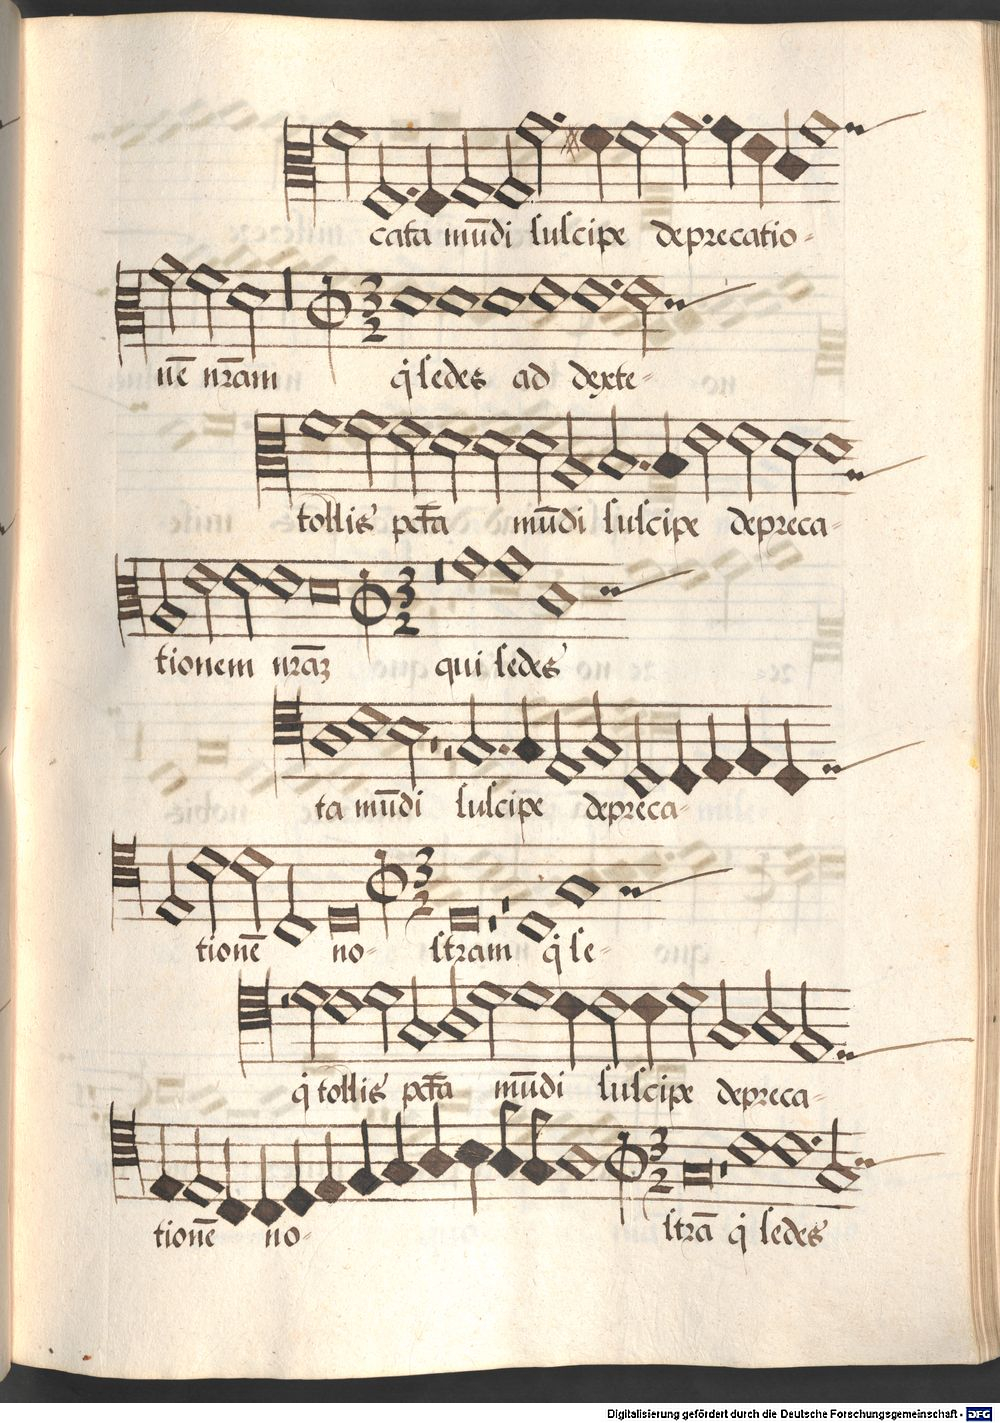 cata mūdi suscipe deprecatio-
nē nr̄am q̇ sedes ad dexte-
tollis pct̄a mūdi suscipe depreca-
tionem nr̄aʒ qui sedes
ta mūdi suscipe depreca-
tionē no- stram q̇ se-
q̇ tollis pct̄a mūdi suscipe depreca-
tionē no- strā q̇ sedes
Digitalisierung gefördert durch die Deutsche Forschungsgemeinschaft - DFG